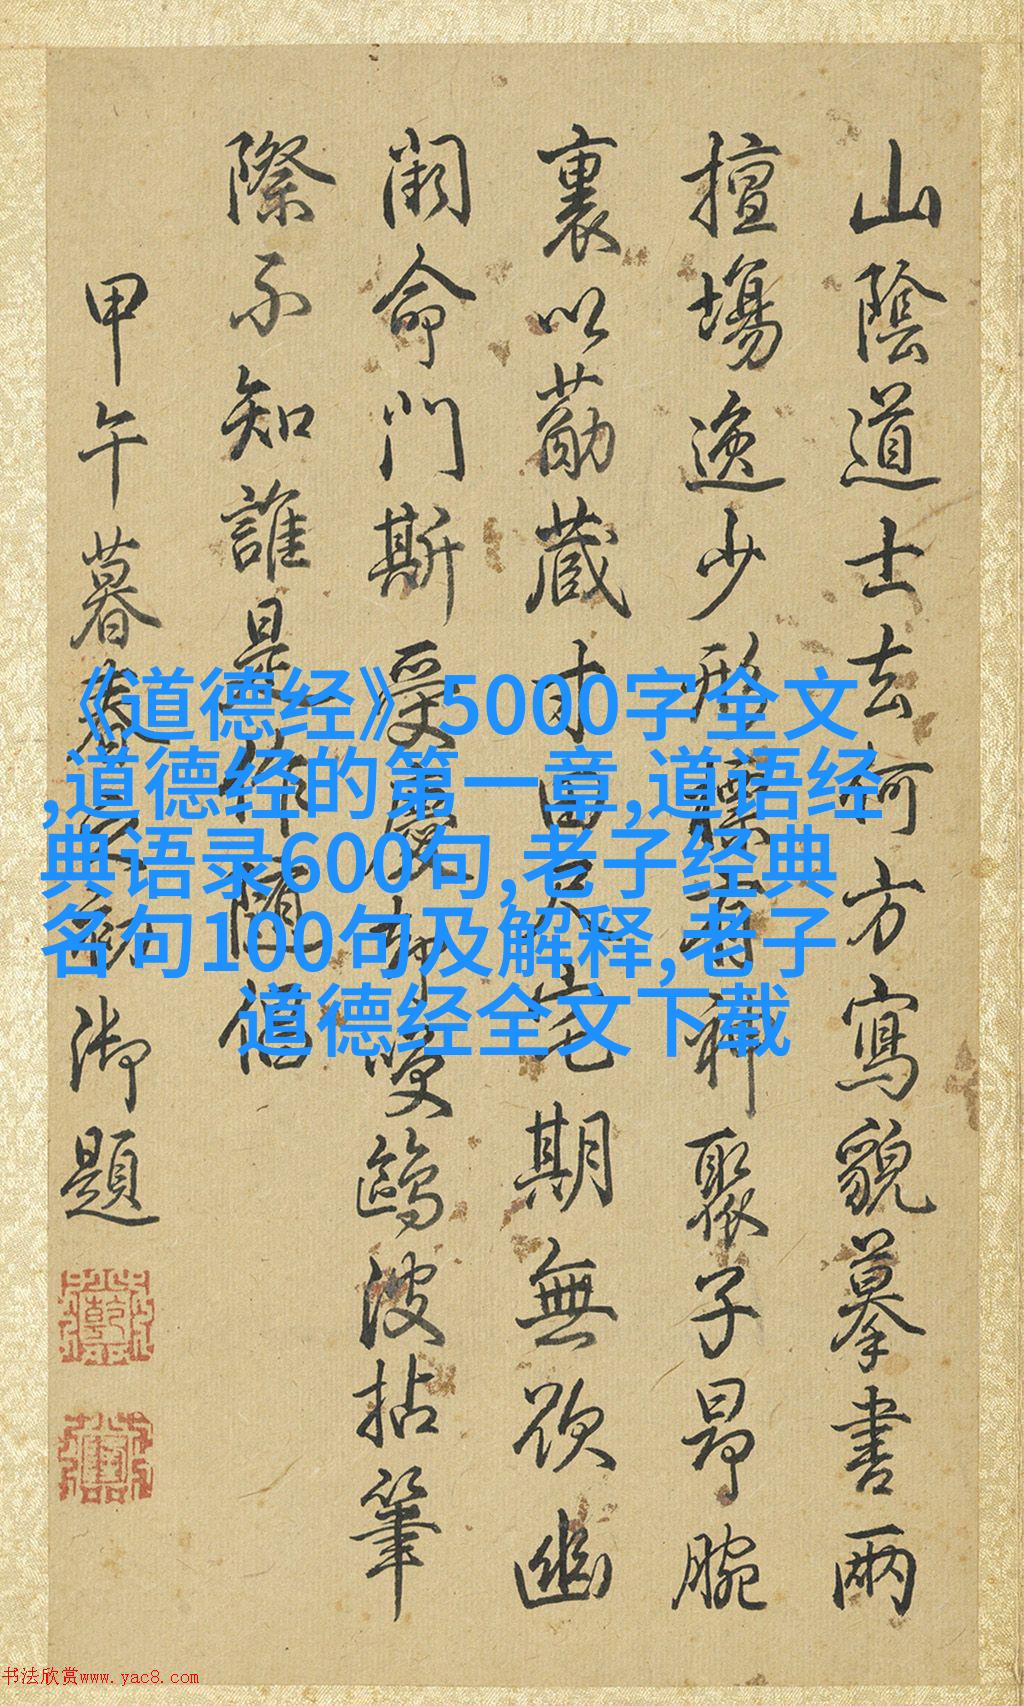 山陰道士去何方寫貌摹書兩
擅場逸少形有神聚子昂腕
裏以蔵寸田尺宅期無欲幽
闕命門斯受慶叟鷗波拈筆
際不知誰是作
甲午暮春御題
《道德经》5000字全文
,道德经的第一章,道语经
典语录600句,老子经典
名句100句及解释,老子
道德经全文下载
书法欣赏www.yac8.com